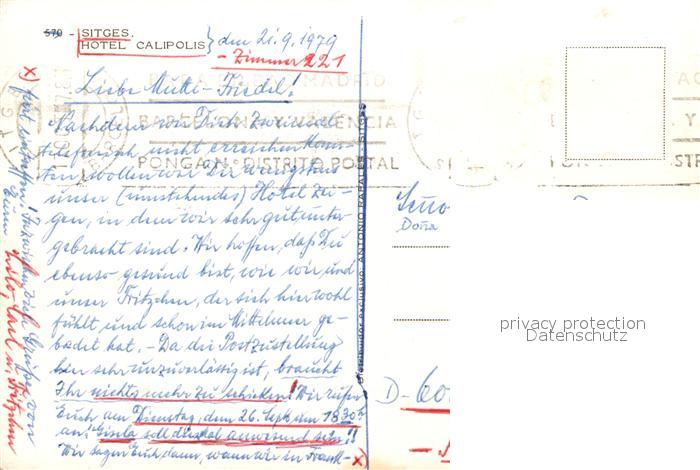 570 - SITGES.
HOTEL CALIPOLIS
den 21.9.1979
- Zimmer 221
Liebe Mutti-Friedel!
Nachdem wir Dich zweimal
telefonisch nicht erreichen konn-
ten wollen wir Dir wenigstens
unser (umstehendes) Hotel zei-
gen, in dem wir sehr gut unter-
gebracht sind. Wir hoffen, daß Du
ebenso gesund bist, wie wir und
unser Fritzchen, der sich hier wohl
fühlt und schon im Mittelmeer ge-
badet hat. - Da die Postzustellung
hier sehr unzuverlässig ist, braucht
Ihr nichts mehr zu schicken! Wir rufen
Euch am Dienstag, dem 26. Sept. um 18.30 h
an! Gisela soll diesmal anwesend sein!!
Wir sagen Euch dann, wann wir in Frank-
x)
x) furt eintreffen! Inzwischen Grüße von
Euren
Carl u. Fritzchen
MADRID
BARCELONA VALENCIA
PONGA N.º DISTRITO POSTAL
Distribuidor exclusivo: ANTONIO RAFALES - SITGES
Seño
Doña
D-60
privacy protection
Datenschutz